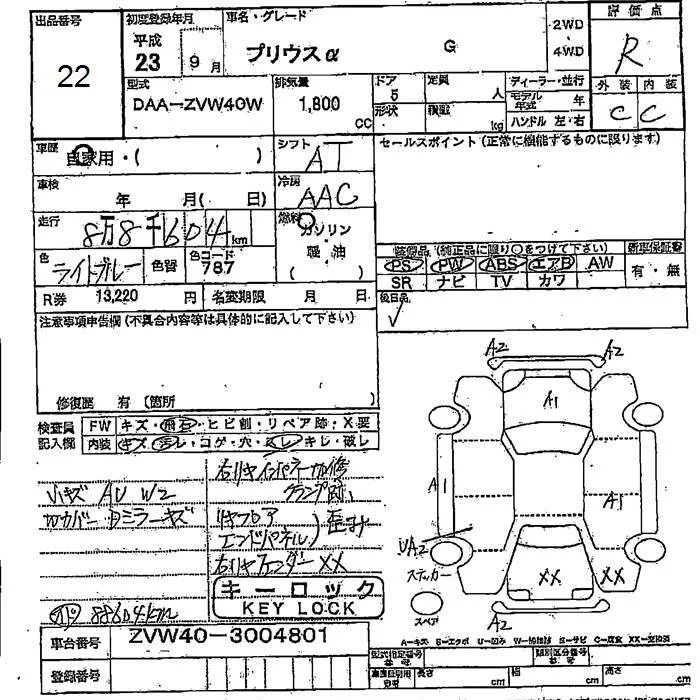 出品番号 22
初度登録年月 平成 23 9月
車名・グレード プリウスα G
2WD・4WD
評価点 R
型式 DAA-ZVW40W
排気量 1,800 CC
ドア 5
形状
定員 人
積載 kg
ディーラー・並行
モデル年式 年
ハンドル 左・右
外装 内装
C C
車歴 自家用・( )
シフト AT
セールスポイント (正常に機能するものに限ります)
車検 年 月( 日)
冷房 AAC
走行 8万8千604km
燃料 ガソリン 軽油 ( )
色 ライトグレー 色替 色コード 787
装備品 (純正品に限り○をつけて下さい) 新車保証書
PS PW ABS エアB AW 有・無
SR ナビ TV カワ
R券 13,220 円 名変期限 月 日
後日品
注意事項申告欄 (不具合内容等は具体的に記入して下さい)
修復歴 有 (箇所 )
検査員記入欄
FW キズ・飛石・ヒビ割・リペア跡・X要
内装 キズ・汚レ・コゲ・穴・スレ・キレ・破レ
小キズ AU W2
右リヤインパネ一加修
クランプ跡
カバー ミラーキズ
リヤフロア
エンドパネル 歪み
右リヤフェンダー XX
キーロック
KEY LOCK
88604km
A2 A2
A1
A1 A1
UA2
ステッカー
XX XX
スペア
A2
車台番号 ZVW40-3004801
登録番号
A-キズ E-エクボ U-凹み S-サビ C-腐食 XX-交換済
型式指定番号 類別区分番号
長さ cm 幅 cm 高さ cm